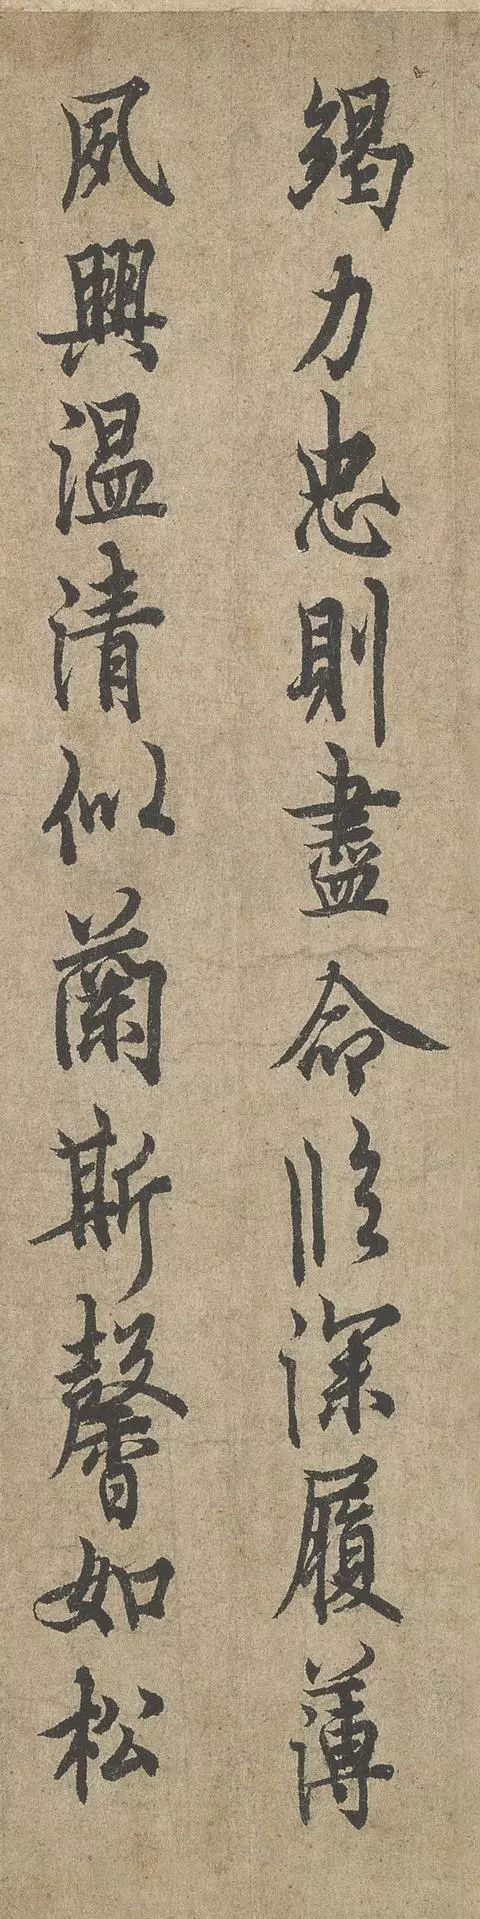 竭力忠則盡命臨深履薄
夙興温清似蘭斯馨如松